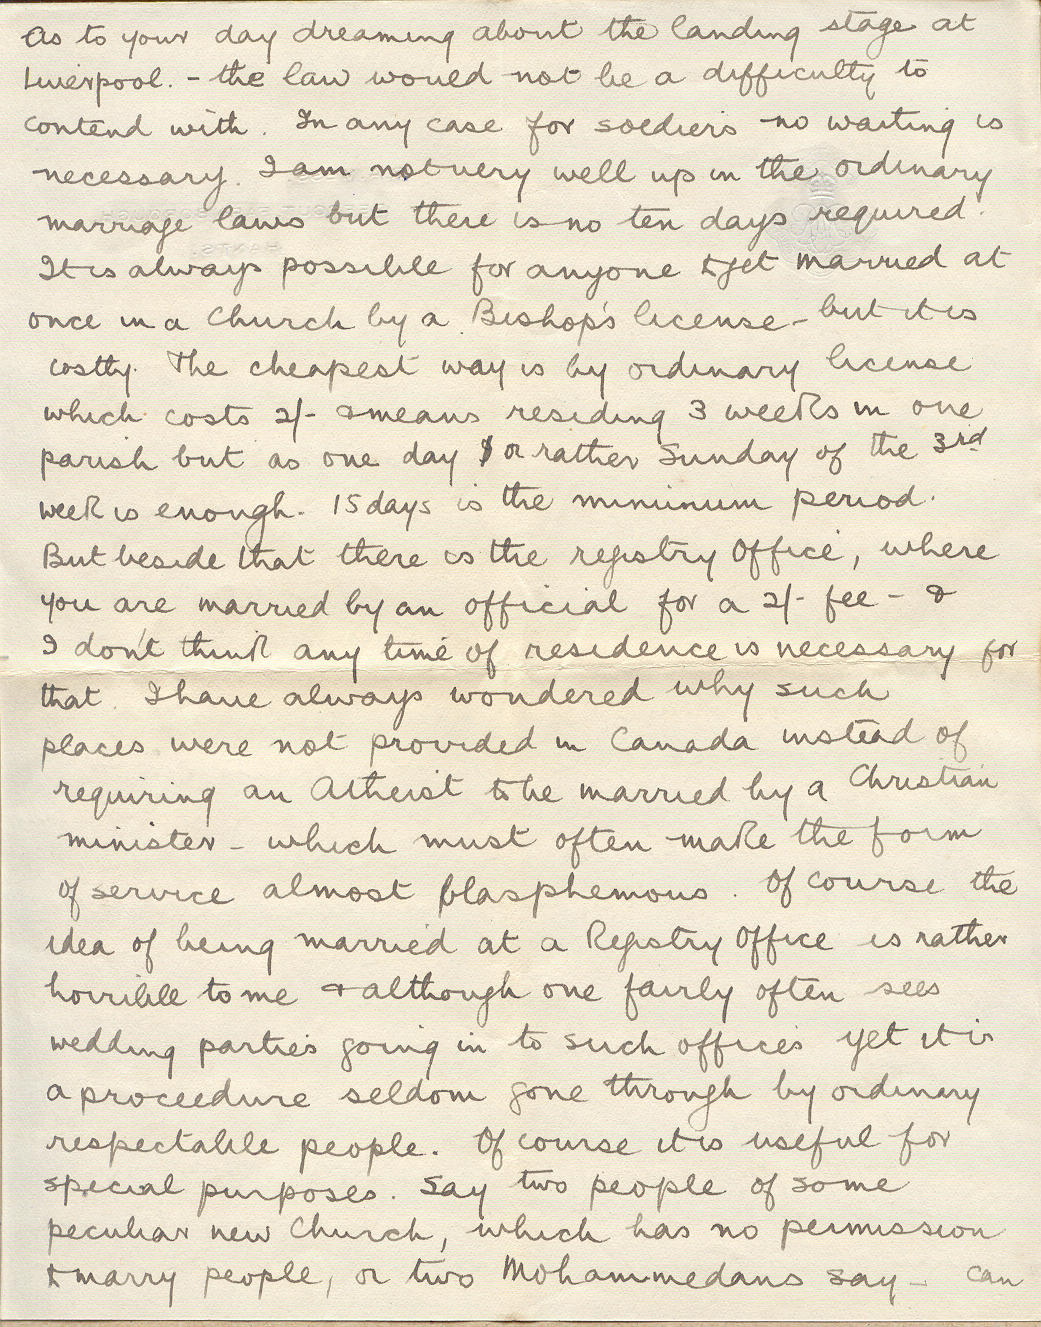 As to your day dreaming about the landing stage at
Liverpool. - the law would not be a difficulty to
contend with. In any case for soldiers no waiting is
necessary. I am not very well up in the ordinary
marriage laws but there is no ten days required.
It is always possible for anyone to get married at
once in a Church by a Bishop's license - but it is
costly. The cheapest way is by ordinary license
which costs 2/- & means residing 3 weeks in one
parish but as one day or rather Sunday of the 3rd
week is enough. 15 days is the minimum period.
But beside that there is the registry Office, where
you are married by an official for a 2/- fee - &
I don't think any time of residence is necessary for
that. I have always wondered why such
places were not provided in Canada instead of
requiring an Atheist to be married by a Christian
minister - which must often make the form
of service almost blasphemous. Of course the
idea of being married at a Registry Office is rather
horrible to me & although one fairly often sees
wedding parties going in to such offices yet it is
a proceedure seldom gone through by ordinary
respectable people. Of course it is useful for
special purposes. Say two people of some
peculiar new Church, which has no permission
to marry people, or two Mohammedans say - can